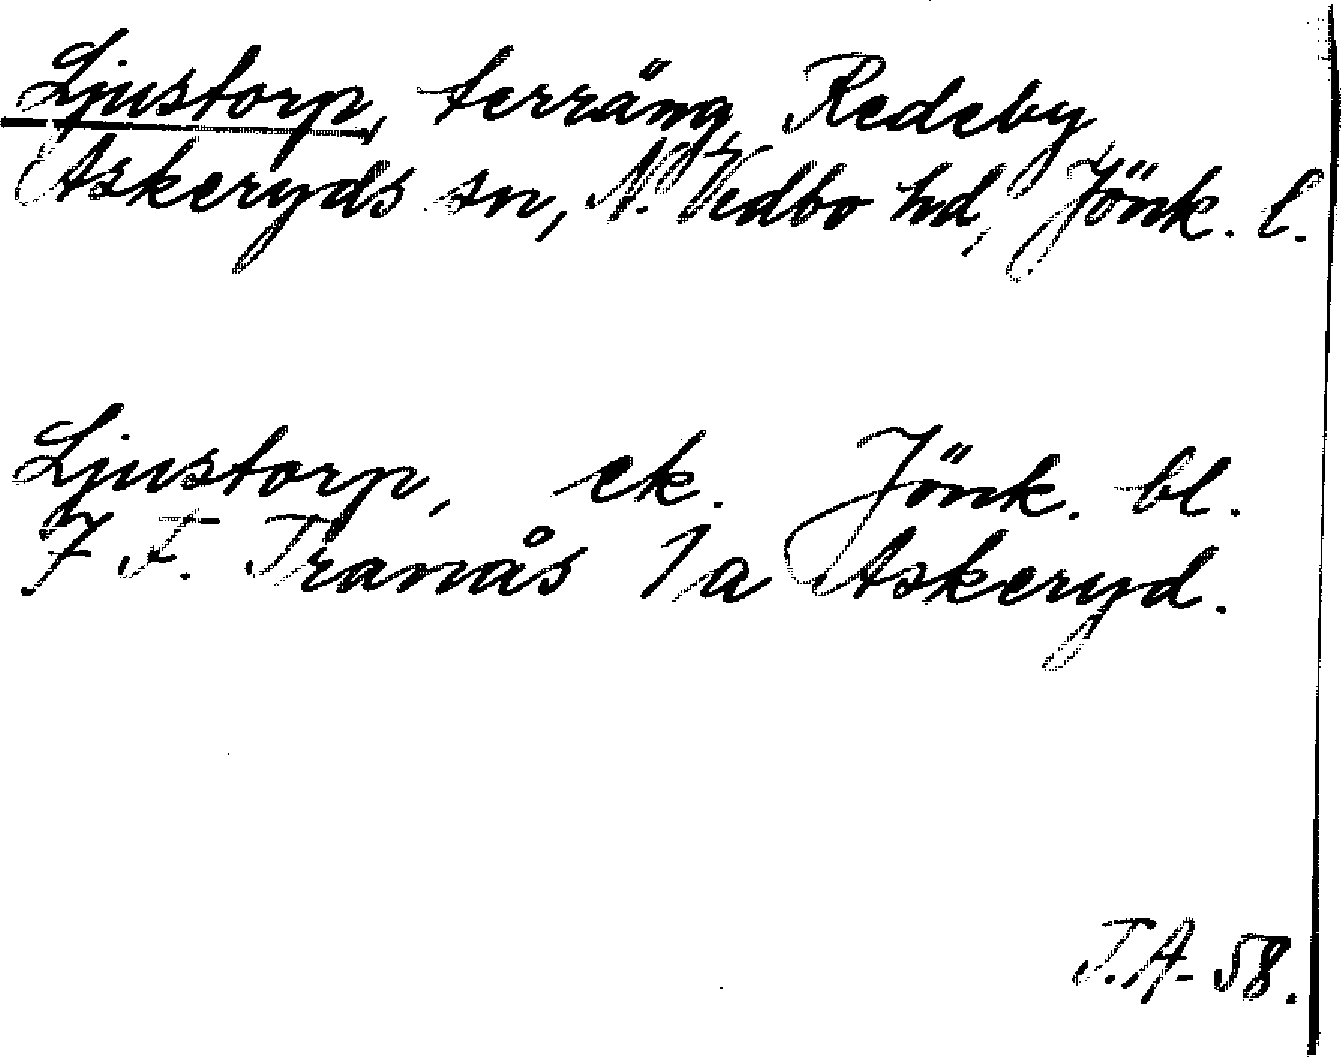 Ljustorp, terräng, Redeby
Askeryds sn, N. Vedbo hd, Jönk. l.
Ljustorp, ek. Jönk. bl.
7 F. Tranås 1 a Askeryd.
T.A- 58.